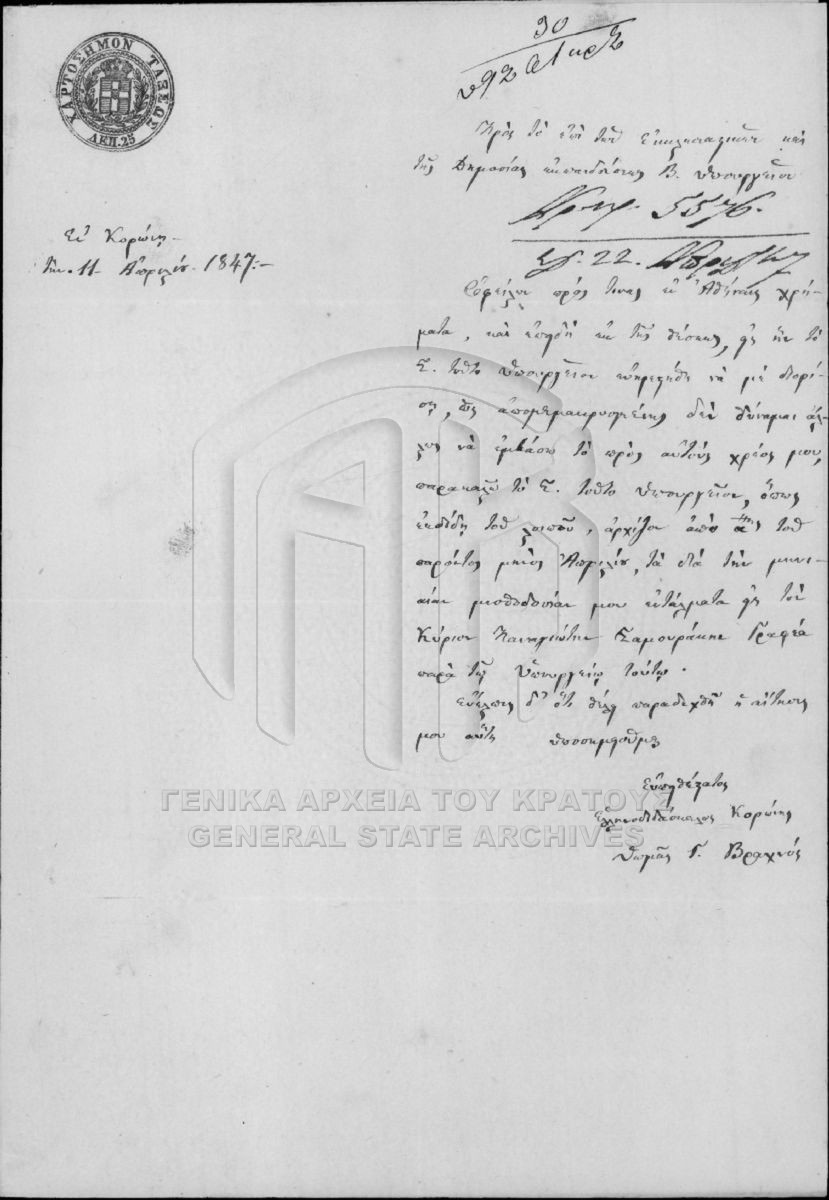 ΧΑΡΤΟΣΗΜΟΝ ΤΑΞΕΩΣ
ΛΕΠ. 25
30
Πρὸς τὸ ἐπὶ τῶν Ἐκκλησιαστικῶν καὶ
τῆς Δημοσίας ἐκπαιδεύσεως Β. Ὑπουργεῖον
Ἀρ. πρ. 5576.
22. Ἀπριλ. 47
Ἐν Κορώνῃ
τὴν 11 Ἀπριλίου 1847:-
Ὀφείλω πρός τινας ἐν Ἀθήναις χρή-
ματα, καὶ ἐπειδὴ ἐκ τῆς θέσεως, εἰς ἣν τὸ
Σ. τοῦτο Ὑπουργεῖον εὐηρεστήθη νὰ μὲ διορί-
σῃ, ὡς ἀπομεμακρυσμένης δὲν δύναμαι ἄλ-
λως νὰ ἐμβάσω τὸ πρὸς αὐτοὺς χρέος μου,
παρακαλῶ τὸ Σ. τοῦτο Ὑπουργεῖον, ὅπως
ἐκδίδῃ τοῦ λοιποῦ, ἀρχίζον ἀπὸ α΄ης τοῦ
παρόντος μηνὸς Ἀπριλίου, τὰ διὰ τὴν μηνι-
αίαν μισθοδοσίαν μου ἐντάλματα εἰς τὸν
Κύριον Παναγιώτην Σαμουράκην Γραφέα
παρὰ τῷ Ὑπουργείῳ τούτῳ.
Εὔελπις δ' ὅτι θέλει παραδεχθῇ ἡ αἴτησίς
μου αὕτη ὑποσημειοῦμαι
Εὐπειθέστατος
Ἑλληνοδιδάσκαλος Κορώνης
Θωμᾶς Γ. Βραχνός
ΓΕΝΙΚΑ ΑΡΧΕΙΑ ΤΟΥ ΚΡΑΤΟΥΣ
GENERAL STATE ARCHIVES